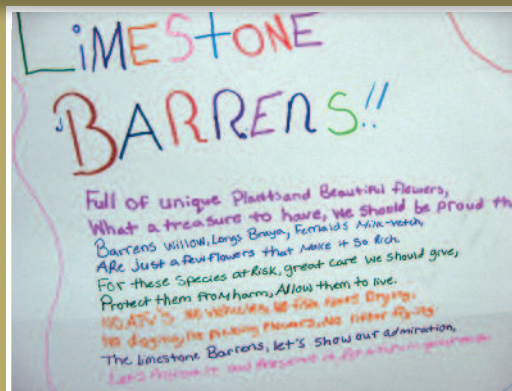 LiMESTONE
BARRENS!!
Full of unique Plants and Beautiful flowers,
What a treasure to have, we should be proud
Barrens Willow, Longs Braya, Fernalds Milk-vetch,
ARe Just a few flowers that Make it So Rich.
For these Species at Risk, great care we should give,
Protect them from harm, Allow them to live.
NO ATV'S no vehicles, no fish Nets Drying,
No digging, No picking flowers, No litter flying
The limestone Barrens, let's show our admiration,
Let's Protect it and Preserve it for a future generation